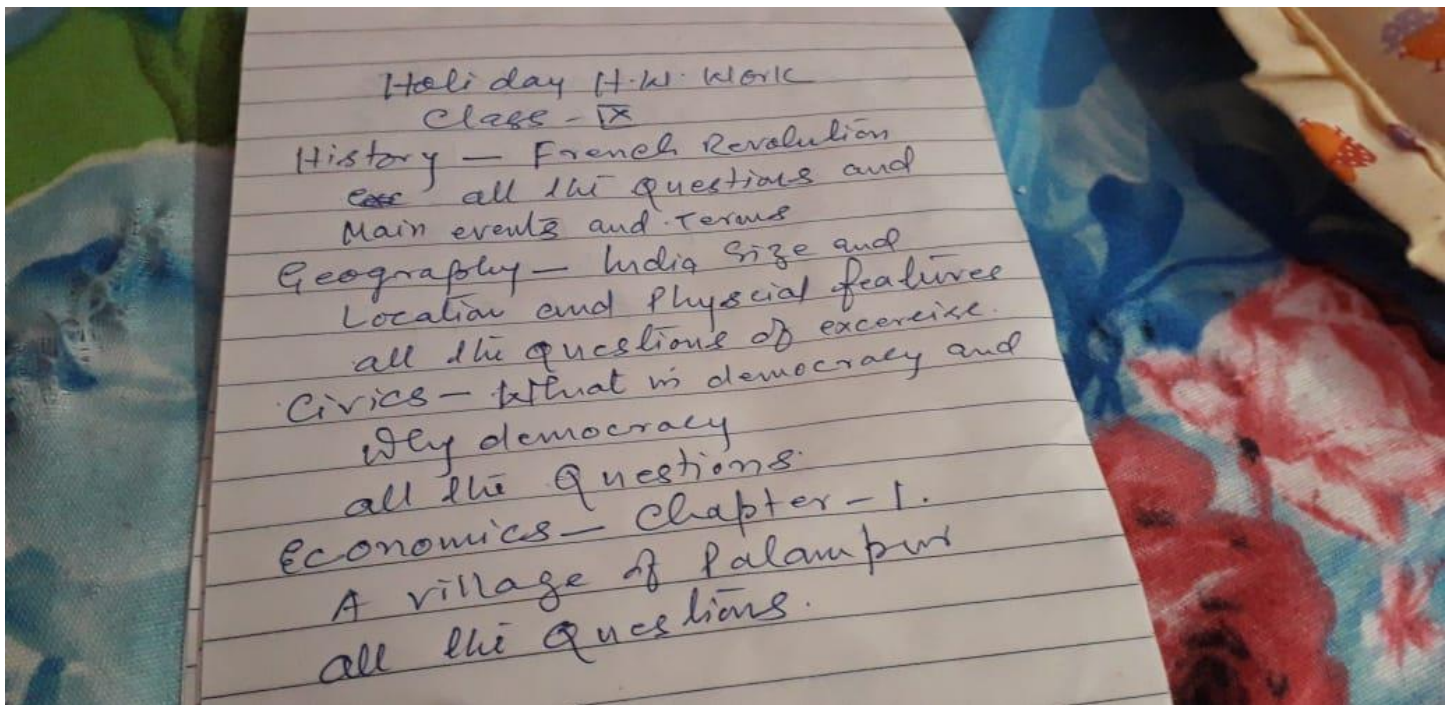 Holiday H.W. Work
Class - IX
History - French Revolution
all the questions and
Main events and Terms
Geography - India Size and
Location and Physcial features
all the questions of excercise.
Civics - What is democracy and
Why democracy
all the Questions.
Economics - Chapter - 1.
A village of Palampur
all the Questions.